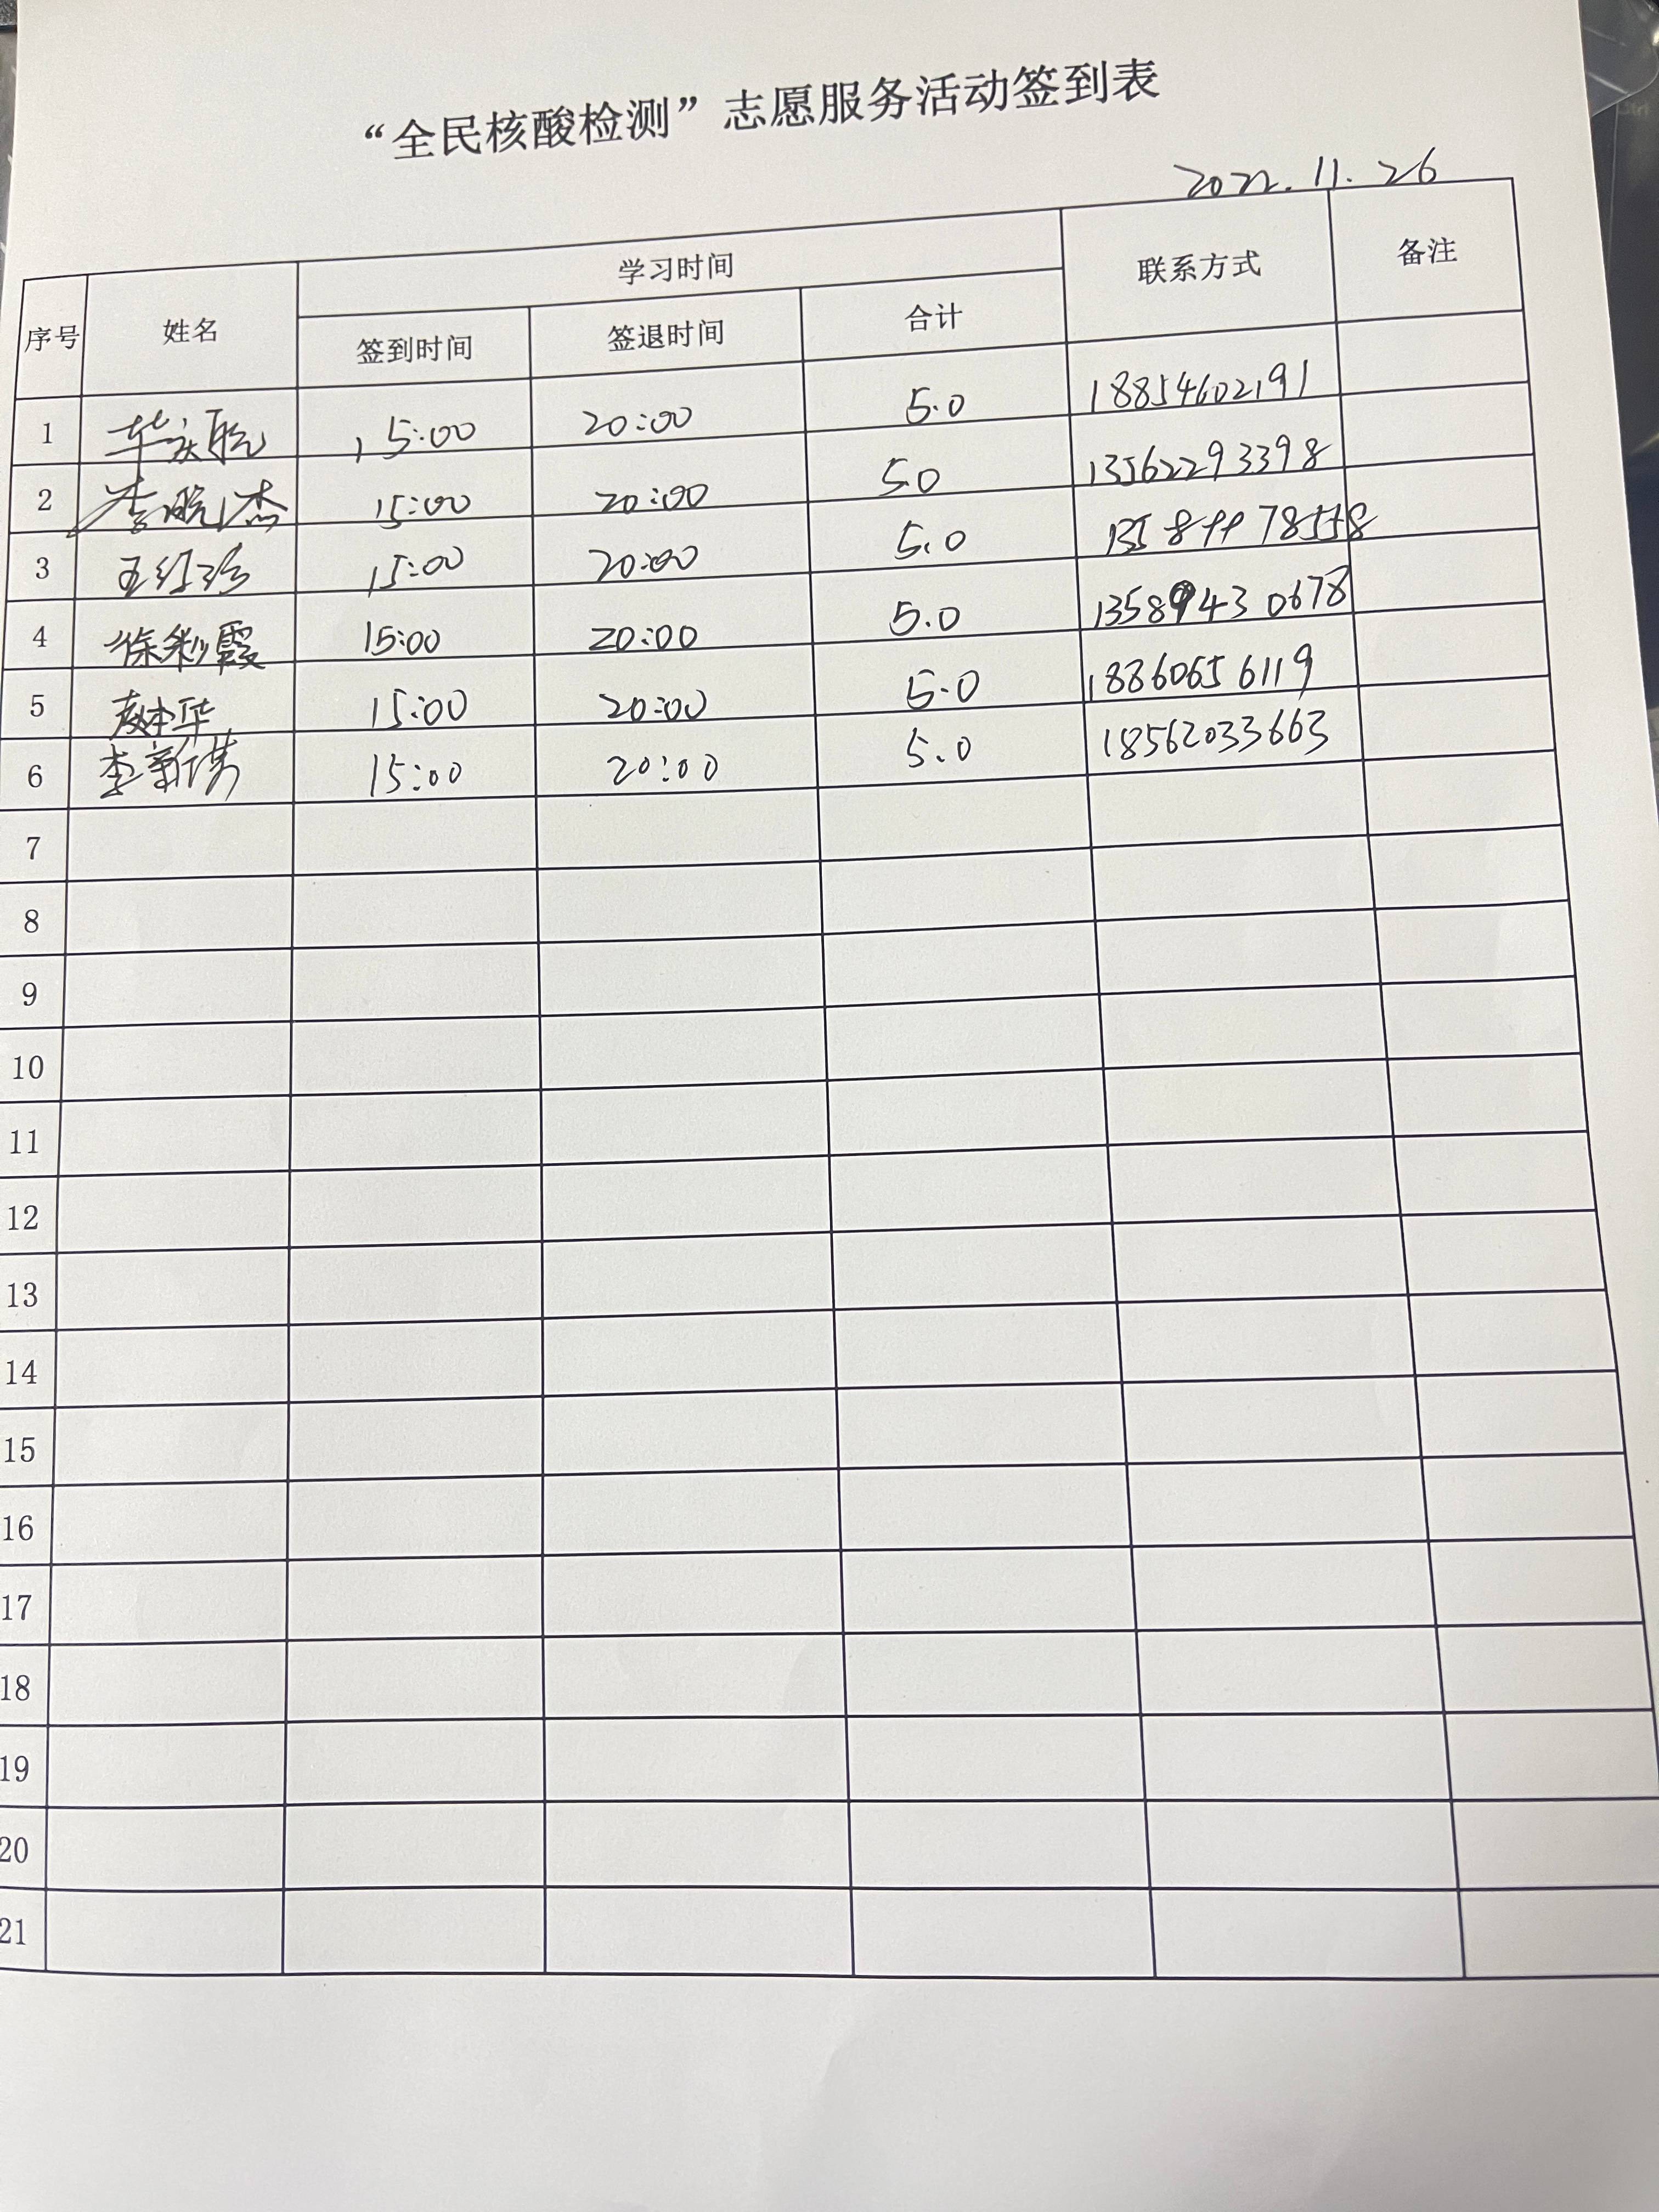 “全民核酸检测”志愿服务活动签到表
2022.11.26
序号 姓名 学习时间 联系方式 备注
签到时间 签退时间 合计
1 15:00 20:00 5.0 18854602191
2 李晓杰 15:00 20:00 5.0 13562293398
3 王红珍 15:00 20:00 5.0
4 徐彩霞 15:00 20:00 5.0 13589430678
5 赵本华 15:00 20:00 5.0 18860656119
6 李新倩 15:00 20:00 5.0 18562033663
7
8
9
10
11
12
13
14
15
16
17
18
19
20
21